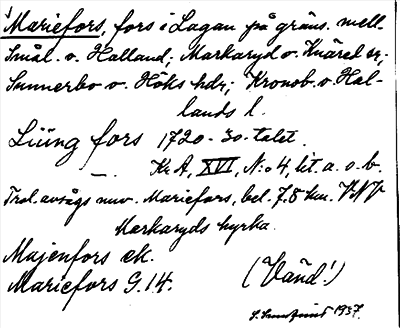 Mariefors, fors i Lagan på gräns. mell.
Smål. o. Halland; Markaryd o. Knäred sr;
Sunnerbo o. Höks hdr; Kronob. o. Hal-
lands l.
Liüng fors 1720-30-talet.
—„— Kr. A, XVI, N:o 4, lit. a. o. b.
Trol. avsågs nuv. Mariefors, bel. 7.8 km. VNV
Markaryds kyrka.
Majenfors ek.
Mariefors G. 14.
(Vänd!)
1937.